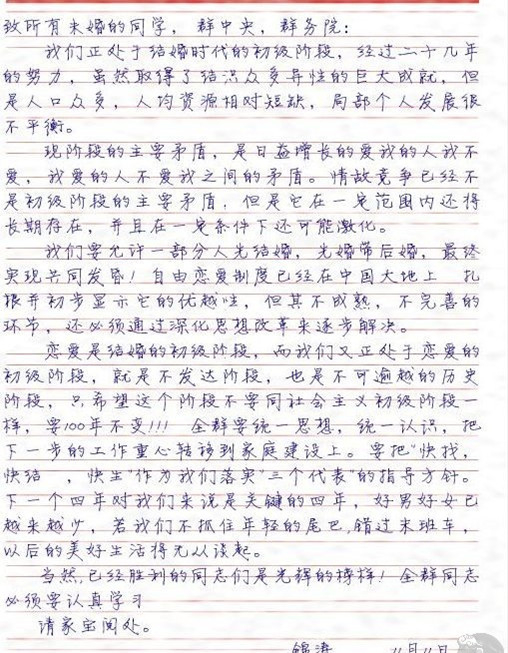 致所有未婚的同学，群中央，群务院：
我们正处于结婚时代的初级阶段，经过二十几年
的努力，虽然取得了结识众多异性的巨大成就，但
是人口众多，人均资源相对短缺，局部个人发展很
不平衡。
现阶段的主要矛盾，是日益增长的爱我的人我不
爱，我爱的人不爱我之间的矛盾。情敌竞争已经不
是初级阶段的主要矛盾，但是它在一定范围内还将
长期存在，并且在一定条件下还可能激化。
我们要允许一部分人先结婚，先婚带后婚，最终
实现共同发昏！自由恋爱制度已经在中国大地上 扎
根并初步显示它的优越性，但其不成熟，不完善的
环节，还必须通过深化思想改革来逐步解决。
恋爱是结婚的初级阶段，而我们又正处于恋爱的
初级阶段，就是不发达阶段，也是不可逾越的历史
阶段，只希望这个阶段不要同社会主义初级阶段一
样，要100年不变!!! 全群要统一思想，统一认识，把
下一步的工作重心转移到家庭建设上。要把"快找，
快结 ，快生"作为我们落实"三个代表"的指导方针。
下一个四年对我们来说是关键的四年，好男好女已
越来越少，若我们不抓住年轻的尾巴,错过末班车，
以后的美好生活将无从谈起。
当然,已经胜利的同志们是光辉的榜样！全群同志
必须要认真学习
请家宝阅处。
锦涛 11月11日